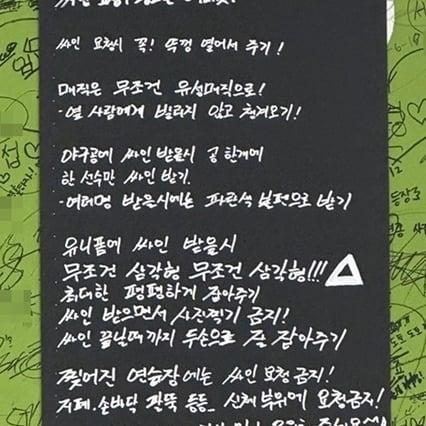 싸인 요청시 꼭! 뚜껑 열어서 주기!
매직은 무조건 유성매직으로!
- 옆 사람에게 빌리지 않고 챙겨오기!
야구공에 싸인 받을시 공 한개에
한 선수만 싸인 받기.
- 여러명 받을시에는 파란색 볼펜으로 받기
유니폼에 싸인 받을시
무조건 삼각형 무조건 삼각형!!!
최대한 평평하게 잡아주기
싸인 받으면서 사진찍기 금지!
싸인 끝날때까지 두손으로 꼭 잡아주기
찢어진 연습장에는 싸인 요청금지!
지폐. 손바닥 팔뚝 등등.. 신체부위에 요청금지!